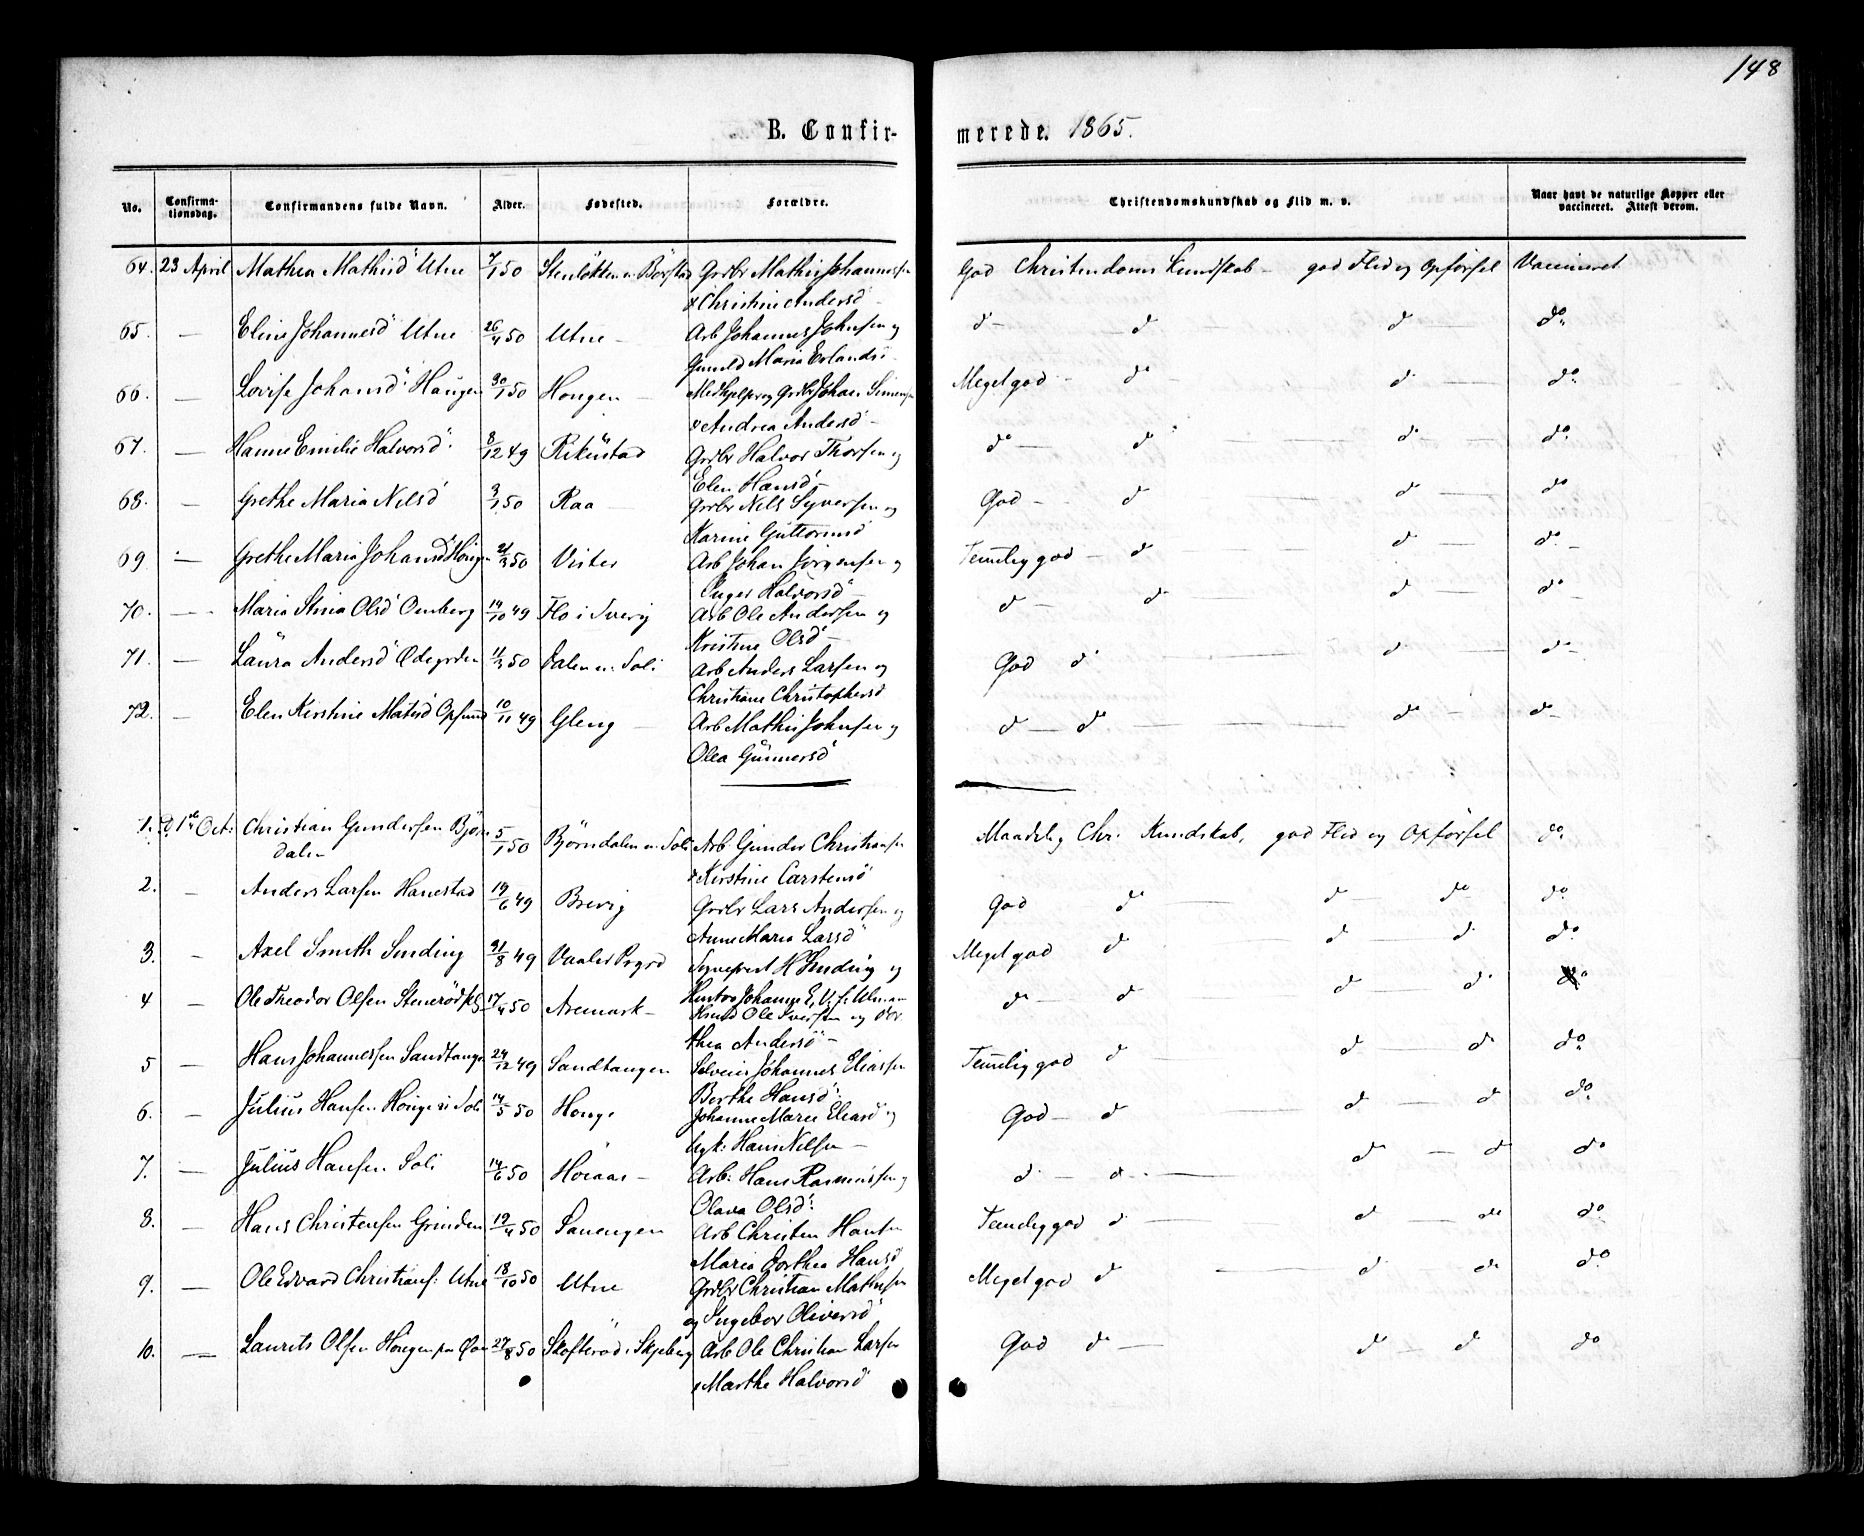 148
B. Confirmerede. 1865.
No. Confirmationsdag. Confirmandens fulde Navn. Alder. Fødested. Forældre. Christendomskundskab og Flid m. v. Naar havt de naturlige Kopper eller vaccineret. Attest derom.
64. 23 April Mathea Mathisd Utne 7/1 50 Grdbr Mathis Johannessen God Christendoms Kundskab - god Flid og Opførsel Vaccineret
& Christine Andersd -
65. — Elina Johannesd Utne 26/4 50 Utne - Arb Johannes Johnsen og d - d d do
Gunild Maria Erlandsd -
66. — Lovise Johansd Haugen 30/1 50 Hougen Medhjelper og Grdbr Johan Simensen Meget god - do d do
& Andrea Andersd -
67. — Hanne Emilie Halvorsd 8/12 49 Rikustad Grdbr Halvor Thorsen og do — do d do
Elen Hansd -
68. — Grethe Maria Nilsd 3/1 50 Raa Grdbr Nils Syversen og God - d d do
Karine Guttormsd
69 — Grethe Maria Johansd Hougen 21/3 50 Vister Arb Johan Jörgensen og Temlig god - d d do
Inger Halvorsd -
70. — Maria Stina Olsd 14/10 49 Flo i Sverig Arb Ole Andersen og d - do d do
Kristine Olsd -
71. — Laura Andersd Ødegorden 11/3 50 Dalen u. Soli Arb Anders Larsen og God d d do
Christiane Christophersd
72. — Elen Kirstine Matisd Opsund 10/11 49 Gleng Arb Mathis Johnsen og d — do do do
Olea Gunnersd
1. d. 1ste Oct: Christian Gundersen Björndalen 5/1 50 Björndalen u. Soli Arb. Gunder Christiansen Maadelig Chr. Kundskab, god Flid og Opførsel do
& Kirstine Carstensd
2. — Anders Larsen Hanestad 19/6 49 Brevig Grdbr Lars Andersen og God do d do do
Anne Maria Larsd
3. — Axel Smith Sinding 31/8 49 Vaaler Prgjd Sognepræst H Sinding og Meget god d d d do
Hustro Johanne
4 — Ole Theodor Olsen 17/4 50 Aremark - Ole Iversen og Dor do - d d d do
thea Andersd -
5 — Hans Johannessen Sandtangen 24/12 49 Sandtangen Selveier Johannes Eliassen Temlig god d d d do
Berthe Hansd
6. — Julius Hansen Honge u Soli 14/5 50 Honge Johanne Marie Eliasd og God - d d d do
Hans Nilsen -
7. — Julius Hansen Soli 14/6 50 Höiaas - Arb. Hans Rasmussen og d. - d. d d do
Olava Olsd
8. — Hans Christensen Grinden 19/4 50 Sanengen Arb Christen Hansen Temlig god d d do do
Maria Dorthea Hansd
9. — Ole Edvard Christians: Utne 18/10 50 Utne Grdbr Christian Mathisen Meget god d d do do
og Ingebor Oliversd
10. — Laurits Olsen Hougen 27/8 50 Skofteröd i Skjeberg Arb Ole Christian Larsen God do d d do
& Marthe Halvorsd